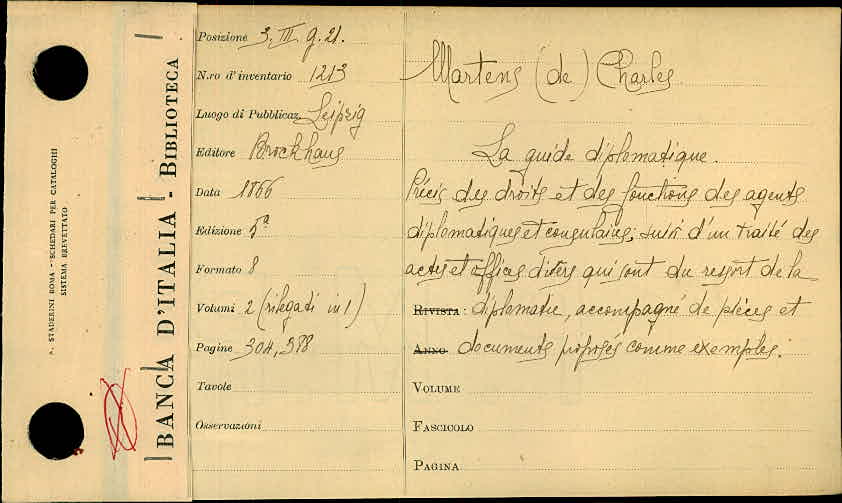 A. STADERINI ROMA - SCHEDARI PER CATALOGHI
SISTEMA BREVETTATO
BANCA D'ITALIA - BIBLIOTECA
Posizione 3. III. g. 21.
N.ro d'inventario 1213
Luogo di Pubblicaz. Leipzig
Editore Brockhaus
Data 1866
Edizione 5ª
Formato 8
Volumi 2 (rilegati in 1)
Pagine 304, 388
Tavole
Osservazioni
Martens (de) Charles
La guide diplomatique.
Précis des droits et des fonctions des agents
diplomatiques et consulaires; suivi d'un traité des
actes et offices divers qui sont du ressort de la
RIVISTA : diplomatie, accompagné de pièces et
ANNO documents proposés comme exemples.
VOLUME
FASCICOLO
PAGINA